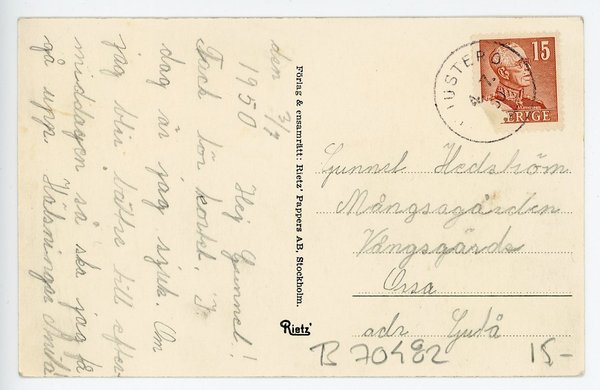 den 3/7
1950 Hej Gunnel!
Tack för kortet. I
dag är jag sjuk. Om
jag blir bättre till efter
middagen så ska jag få
gå upp. Hälsningar Anita!
Förlag & ensamrätt: Rietz' Pappers AB, Stockholm.
Rietz'
LJUSTERÖ
15
SVERIGE
Gunnel Hedström
Mångsagården
Vångsgärde
Orsa
adr Ljudå
B 70482
15-